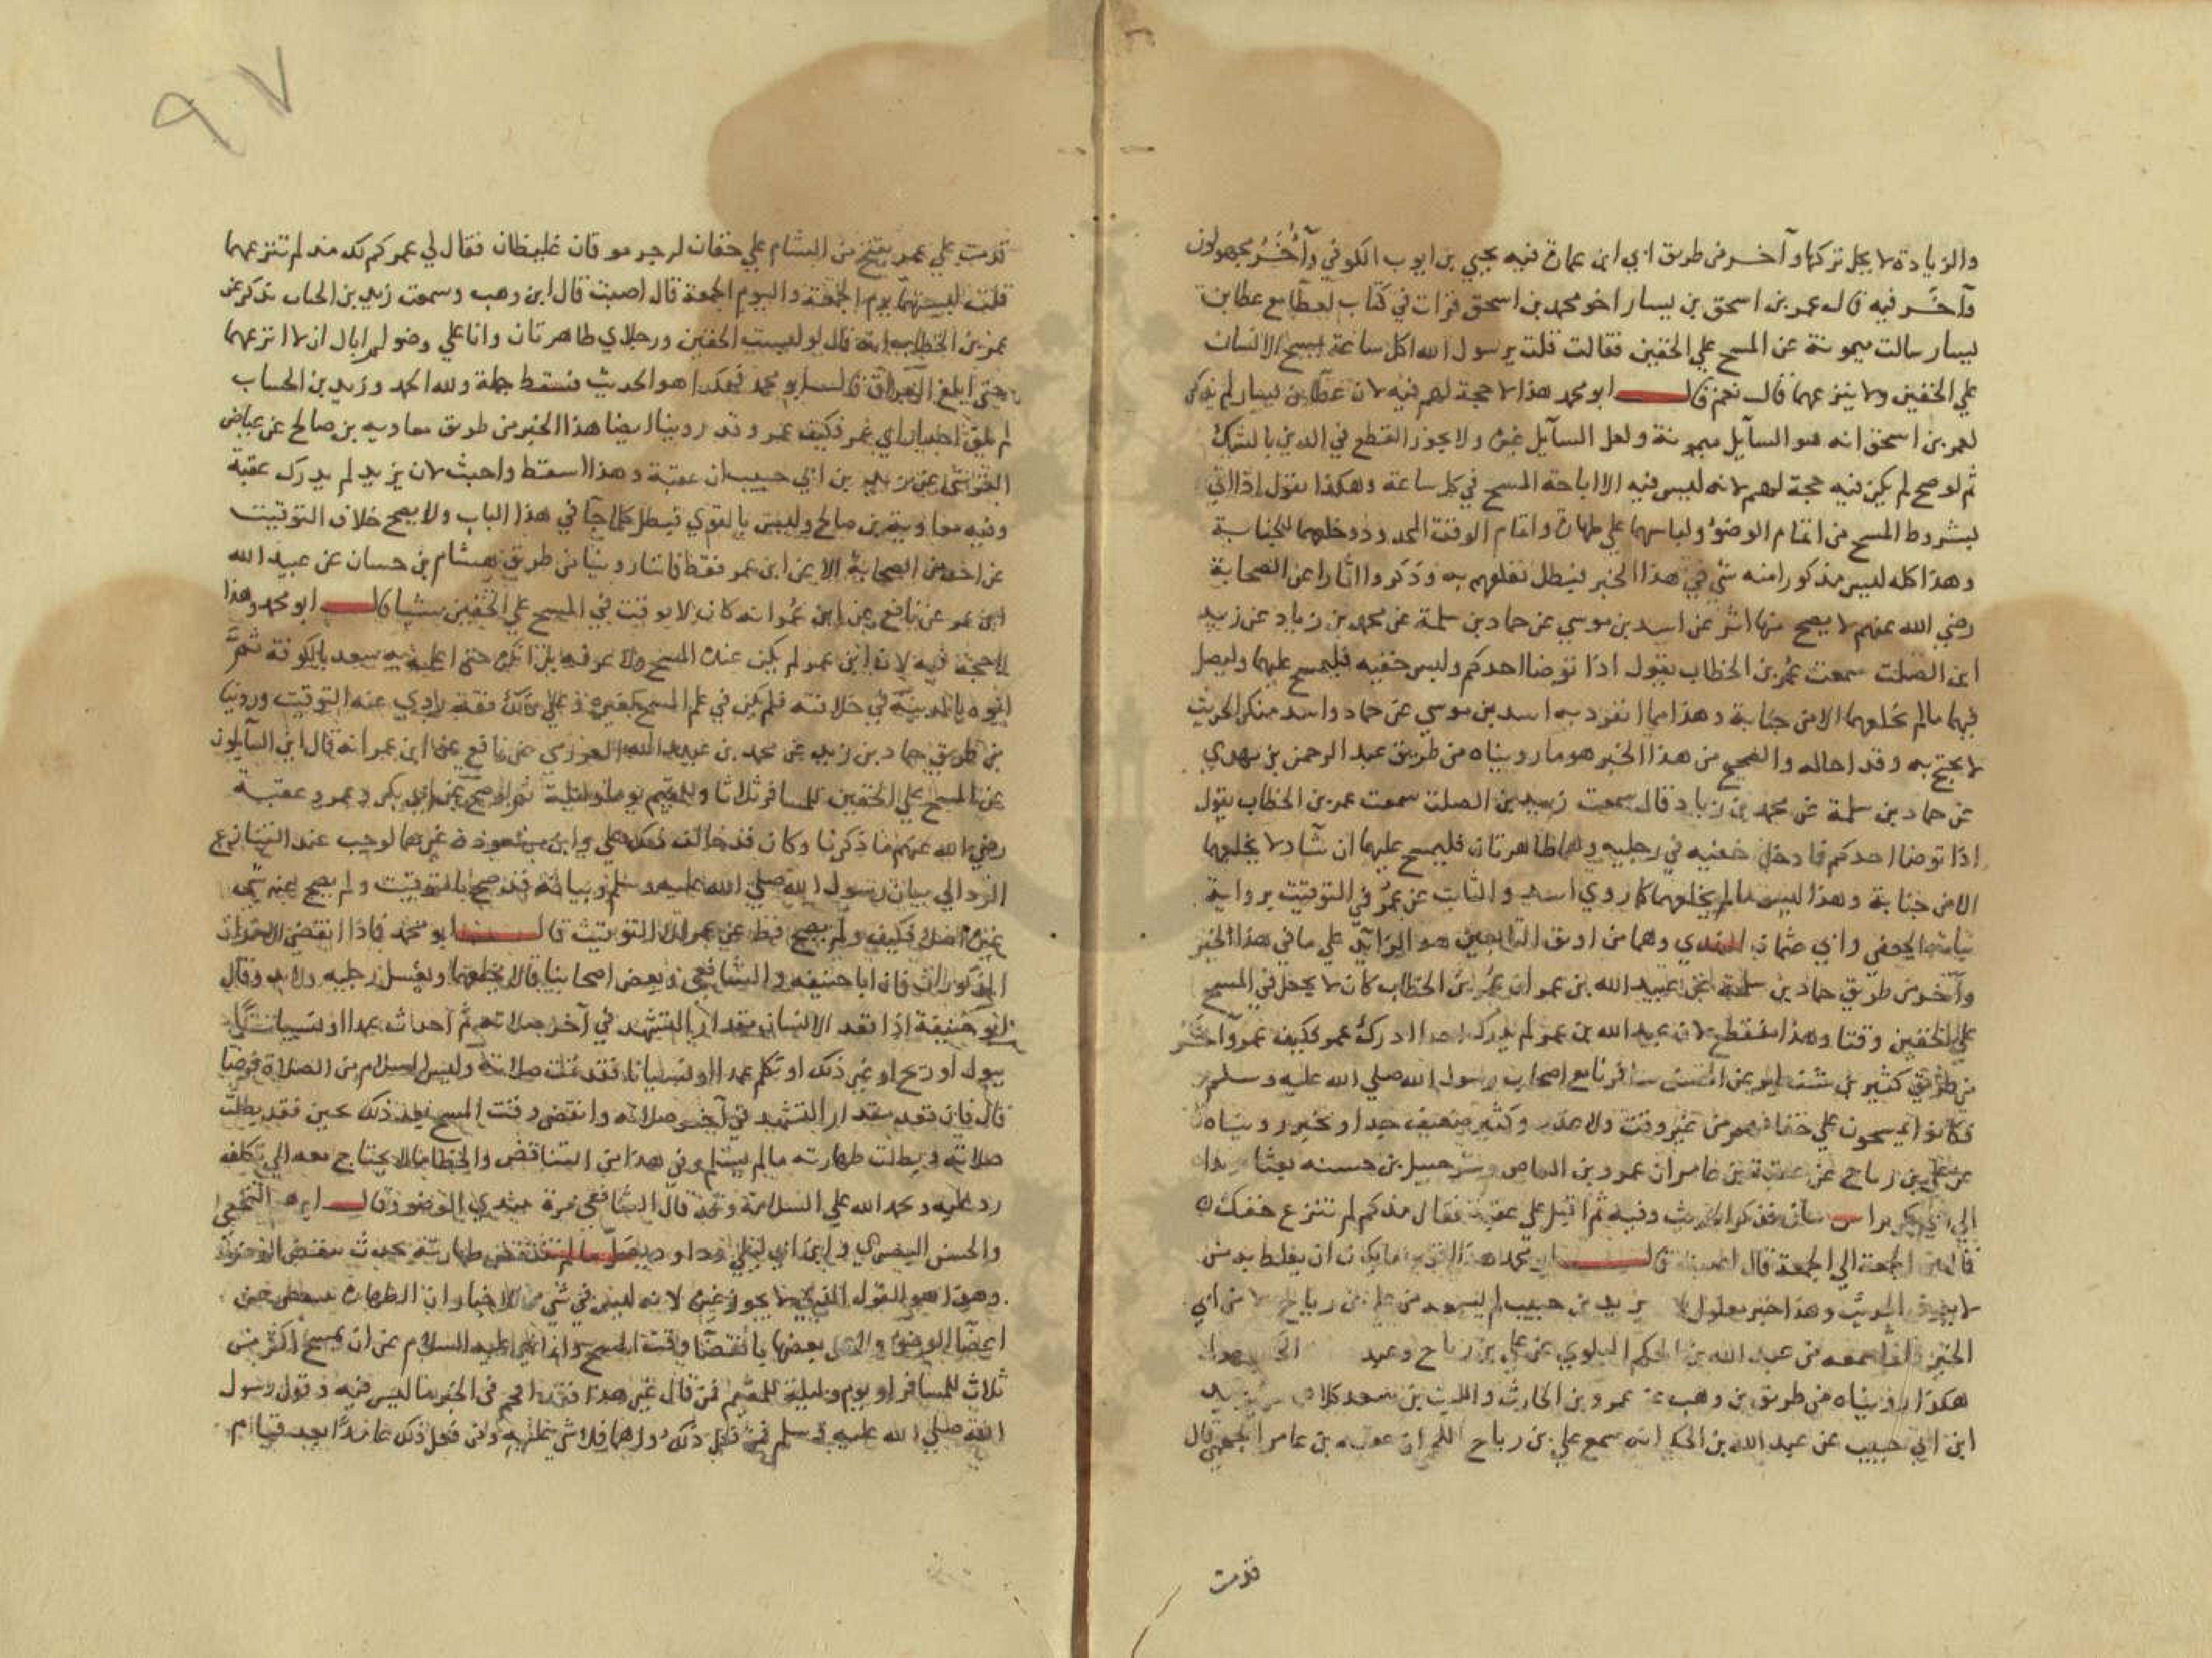 والزيادة لا يحل تركها وآخر من طريق ابي ابن عمارة فيه يحيي بن ايوب الكوفي وآخَرُ مجهولون
وآخَر فيه قال عمر بن اسحق بن يسار اخو محمد بن اسحق قرات في كتاب لعطا مع عطا بن
يسار سالت ميمونة عن المسح علي الخفين فقالت قلت يرسول الله اكل ساعة يمسح الانسان
علي الخفين ولا ينزعهما قال نعم قال ابو محمد هذا لا حجة لهم فيه لان عطا بن يسار لم يذكر
لعمر بن اسحق انه هو السآيل ميمونة ولعل السآيل غيره ولا يجوز القطع في الدين بالشك
ثم لو صح لم يكن فيه حجة لهم لانه ليس فيه الا اباحة المسح في كل ساعة وهكذا نقول اذا اتي
بشروط المسح من اتمام الوضوُ ولباسهما علي طهارة واتمام الوقت المحدود وخلعهما للجنابة
وهذا كله ليس مذكورا منه شي في هذا الخبر فبطل تعلقهم به وذكروا اثارا عن الصحابة
رضي الله عنهم لا يصح منها اثر عن اسد بن موسي عن حماد بن سلمة عن محمد بن زياد عن زييد
ابن الصلت سمعت عمر بن الخطاب يقول اذا توضا احدكم ولبس خفيه فليمسح عليهما وليصل
فيهما ما لم يخلعهما الا من جنابة وهذا مما انفرد به اسد بن موسي عن حماد واسد منكر الحديث
لا يحتج به وقد احاله والصحيح من هذا الخبر هو ما رويناه من طريق عبد الرحمن بن مهدي
عن حماد بن سلمة عن محمد بن زياد قال سمعت زييد بن الصلت سمعت عمر بن الخطاب يقول
اذا توضا احدكم فادخل خفيه في رجليه وهما طاهرتان فليمسح عليهما ان شا ولا يخلعهما
الا من جنابة وهذا ليس ما لم يخلعهما كما روي اسد والثابت عن عمر في التوقيت برواية
نباتة الجعفي وابي عثمان النهدي وهما من اوثق التابعين هو الزايد علي ما في هذا الخبر
وآخر من طريق حماد بن سلمة عن عبيد الله بن عمر ان عمر بن الخطاب كان لا يجعل في المسح
علي الخفين وقتا وهذا منقطع لان عبيد الله بن عمر لم يدرك احدا ادرك عمر فكيف عمر وآخَر
من طريق كثير بن شنظير عن الحسن سافرنا مع اصحاب رسول الله صلي الله عليه وسلم
فكانوا يمسحون علي خفافهم من غير وقت ولا عذر وكثير ضعيف جدا وخبر رويناه
عن علي بن رباح عن عقبة بن عامر ان عمرو بن العاص وشرحبيل بن حسنه بعثا بريدا
الي ابي بكر براس فذكر الحديث وفيه ثم اقبل علي عقبة فقال مذ كم لم تنزع خفيك
قال من الجمعة الي الجمعة قال اصبت قال ابو محمد هذا اقرب ما يمكن ان يغلط به من
لا يعرف الحديث وهذا خبر معلول لان يزيد بن حبيب لم يسمعه من علي بن رباح ولا من ابي
الخير وانما سمعه من عبد الله بن الحكم البلوي عن علي بن رباح وعبد
هكذا رويناه من طريق بن وهب عن عمرو بن الحارث والليث بن سعد كلاهما عن يزيد
ابن ابي حبيب عن عبد الله بن الحكم انه سمع علي بن رباح اللخمي ان عقبة بن عامر الجهني قال
قدمت
٩٧
قدمت علي عمر بفتح من الشام علي خفان لي جرموقان غليظان فقال لي عمر كم لك مند لم تنزعهما
قلت لبستهما يوم الجمعة واليوم الجمعة قال اصبت قال ابن وهب وسمعت زيد بن الحباب يذكر عن
عمر بن الخطاب انه قال لو لبست الخفين ورجلاي طاهرتان وانا علي وضو لم ابال ان لا انزعهما
حتي ابلغ العراق قال ابو محمد فهكذا هو الحديث فسقط جملة ولله الحمد وزيد بن الحباب
لم يلق احدا راي عمر فكيف عمر وقد روينا ايضا هذا الخبر من طريق معاويه بن صالح عن عياض
القرشي عن يزيد بن ابي حبيب ان عقبة وهذا اسقط واخبث لان يزيد لم يدرك عقبة
وفيه معاوية بن صالح وليس بالقوي فبطل كلما جآ في هذا الباب ولا يصح خلاف التوقيت
عن احد من الصحابة الا عن ابن عمر فقط فاننا روينا من طريق هشام بن حسان عن عبيد الله
ابن عمر عن نافع عن ابن عُمر انه كان لا يوقت في المسح علي الخفين شيا قال ابو محمد وهذا
لا حجة فيه لان ابن عمر لم يكن عنده المسح ولا عرفه بل انكره حتي اعلمه به سعد بالكوفة ثم
ابوه بالمدينة في خلافته فلم يكن في علم المسح كغيره وعلي ذلك فقد روي عنه التوقيت وروينا
من طريق حماد بن زيد عن محمد بن عبيد الله العرزمي عن نافع عن ابن عمر انه قال اين السآيلون
عن المسح علي الخفين للمسافر ثلاثا وللمقيم يوما وليلة ثم لو صح عن ابي بكر وعمر وعقبة
رضي الله عنهم ما ذكرنا وكان قد خالف ذلك علي وابن مسعود وغيرهما لوجب عند التنازع
الرد الي بيان رسول الله صلي الله عليه وسلم وبيانه قد صح بالتوقيت ولم يصح عنه شي
غيره اصلا فكيف ولم يصح قط عن عمر الا التوقيت قال ابو محمد فاذا انقضي الامدان
المذكوران فان ابا حنيفه والشافعي وبعض اصحابنا قالا يخلعهما ويغسل رجليه ولابد وقال
ابو حنيفة اذا قعد الانسان مقدار التشهد في آخر صلاته ثم احدث عمدا او نسيانا
ببول او ريح او غير ذلك او تكلم عمدا او نسيانا فقد تمت صلاته وليس السلام من الصلاة فرضا
قال فان قعد مقدار التشهد في آخر صلاته وانقضي وقت المسح بعد ذلك حين فقد بطلت
صلاته وبطلت طهارته ما لم يسلم وفي هذا من التناقض والخطا ما لا يحتاج معه الي تكلف
رد عليه ونحمد الله علي السلامة وقد قال الشافعي مرة يبتدي الوضو وقال ابرهيم النخعي
والحسن البصري وابن ابي ليلي وداود يصلي ما لم تنتقض طهارته بحدث ينقض الوضوء
وهذا هو القول الذي لا يجوز غيره لانه ليس في شي من الاخبار ان الطهارة تنتقض عن
اعضآ الوضو ولا عن بعضها بانقضآ وقت المسح وانما نهي عليه السلام عن ان يمسح اكثر من
ثلاث للمسافر او يوم وليلة للمقيم فمن قال غير هذا فقد اقحم في الخبر ما ليس فيه وقول رسول
الله صلي الله عليه وسلم فمن فعل ذلك واهما فلا شي عليه ومن فعل ذلك عامدا بعد قيام